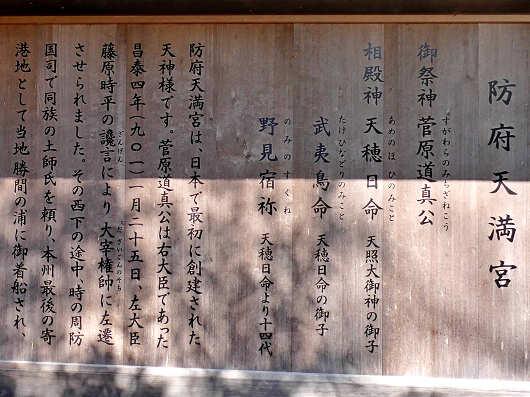 防府天満宮
御祭神 菅原道真公
すがわらのみちざねこう
相殿神 天穂日命 天照大御神の御子
あめのほひのみこと
武夷鳥命 天穂日命の御子
たけひなどりのみこと
野見宿祢 天穂日命より十四代
のみのすくね
防府天満宮は、日本で最初に創建された
天神様です。菅原道真公は右大臣であった
昌泰四年(九〇一)一月二十五日、左大臣
藤原時平の讒言により大宰権帥に左遷
ざんげん だざいごんのそち
させられました。その西下の途中、時の周防
国司で同族の土師氏を頼り、本州最後の寄
港地として当地勝間の浦に御着船され、